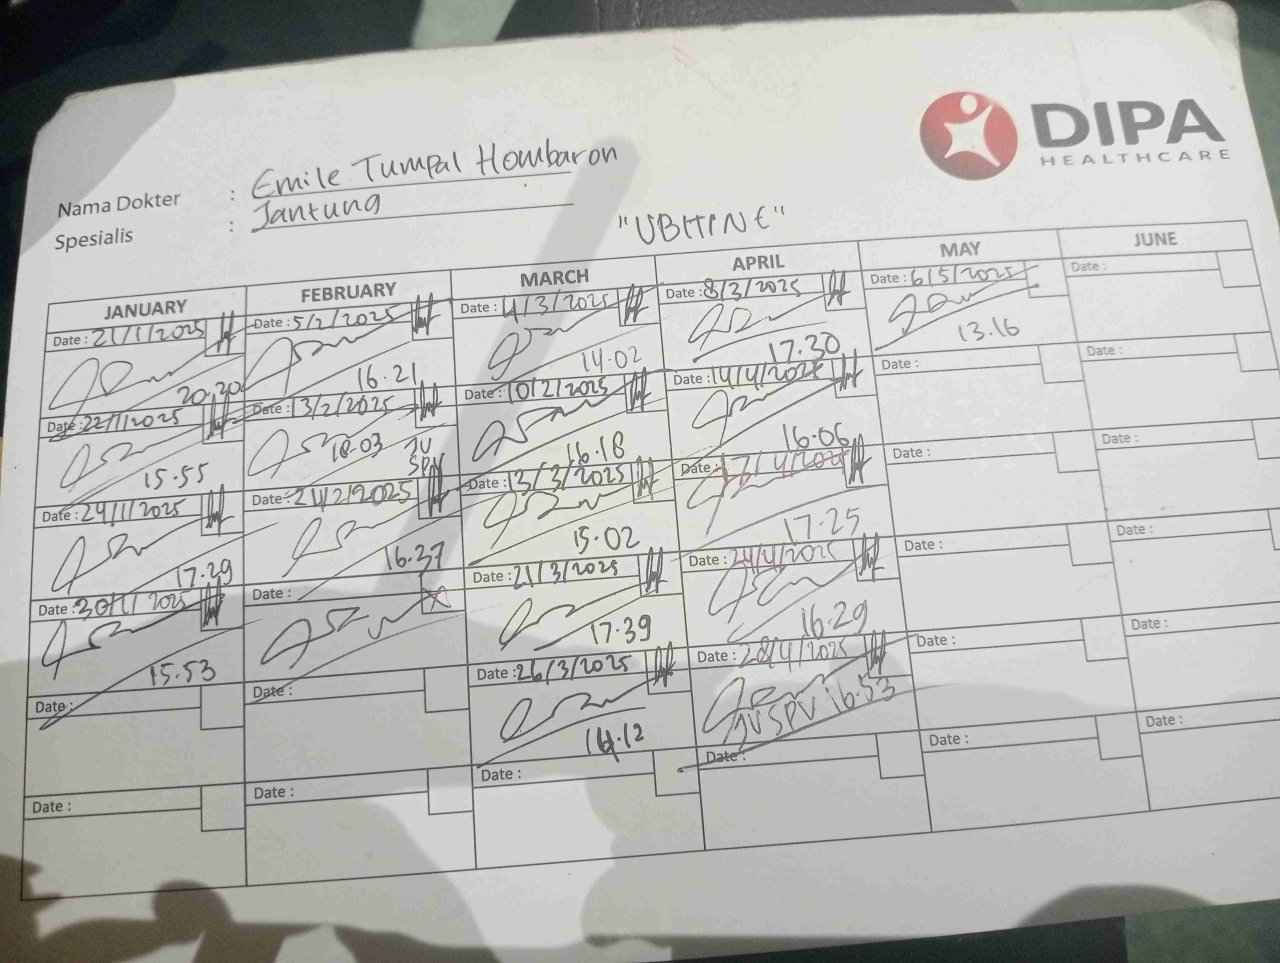 DIPA
HEALTHCARE
Nama Dokter : Emile Tumpal Hombaron
Spesialis : Jantung
"UBHINE"
JANUARY FEBRUARY MARCH APRIL MAY JUNE
Date : 21/1/2025 Date : 5/2/2025 Date : 4/3/2025 Date : 8/3/2025 Date : 6/5/2025 Date :
20.20 16.21 14.02 17.30 13.16
Date : 22/1/2025 Date : 13/2/2025 Date : 10/2/2025 Date : 14/4/2025 Date : Date :
15.55 18.03 JV SPV 16.18 16.06
Date : 24/1/2025 Date : 21/2/2025 Date : 13/3/2025 Date : 17/4/2025 Date : Date :
17.29 16.37 15.02 17.25
Date : 30/1/2025 Date : Date : 21/3/2025 Date : 24/4/2025 Date : Date :
15.53 17.39 16.29
Date : Date : Date : 26/3/2025 Date : 28/4/2025 Date : Date :
14.12 JV SPV 16.53
Date : Date : Date : Date : Date : Date :